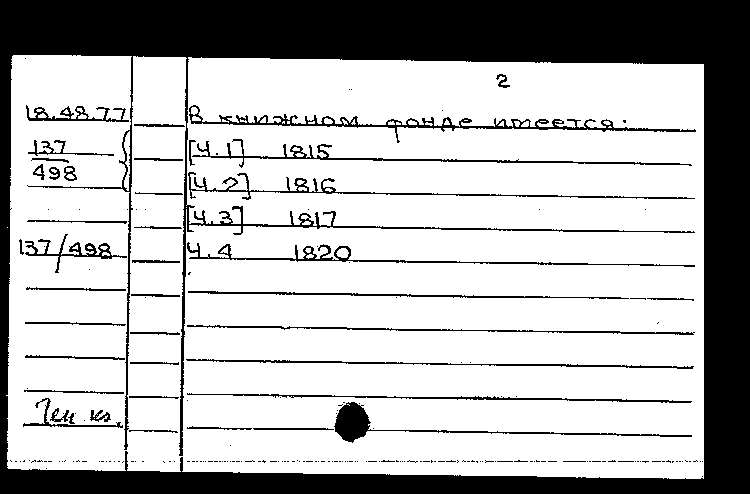 2
18.48.77 В книжном фонде имеется:
137 [Ч.1] 1815
498 [Ч.2] 1816
[Ч.3] 1817
137/498 Ч.4 1820
Ген кз.